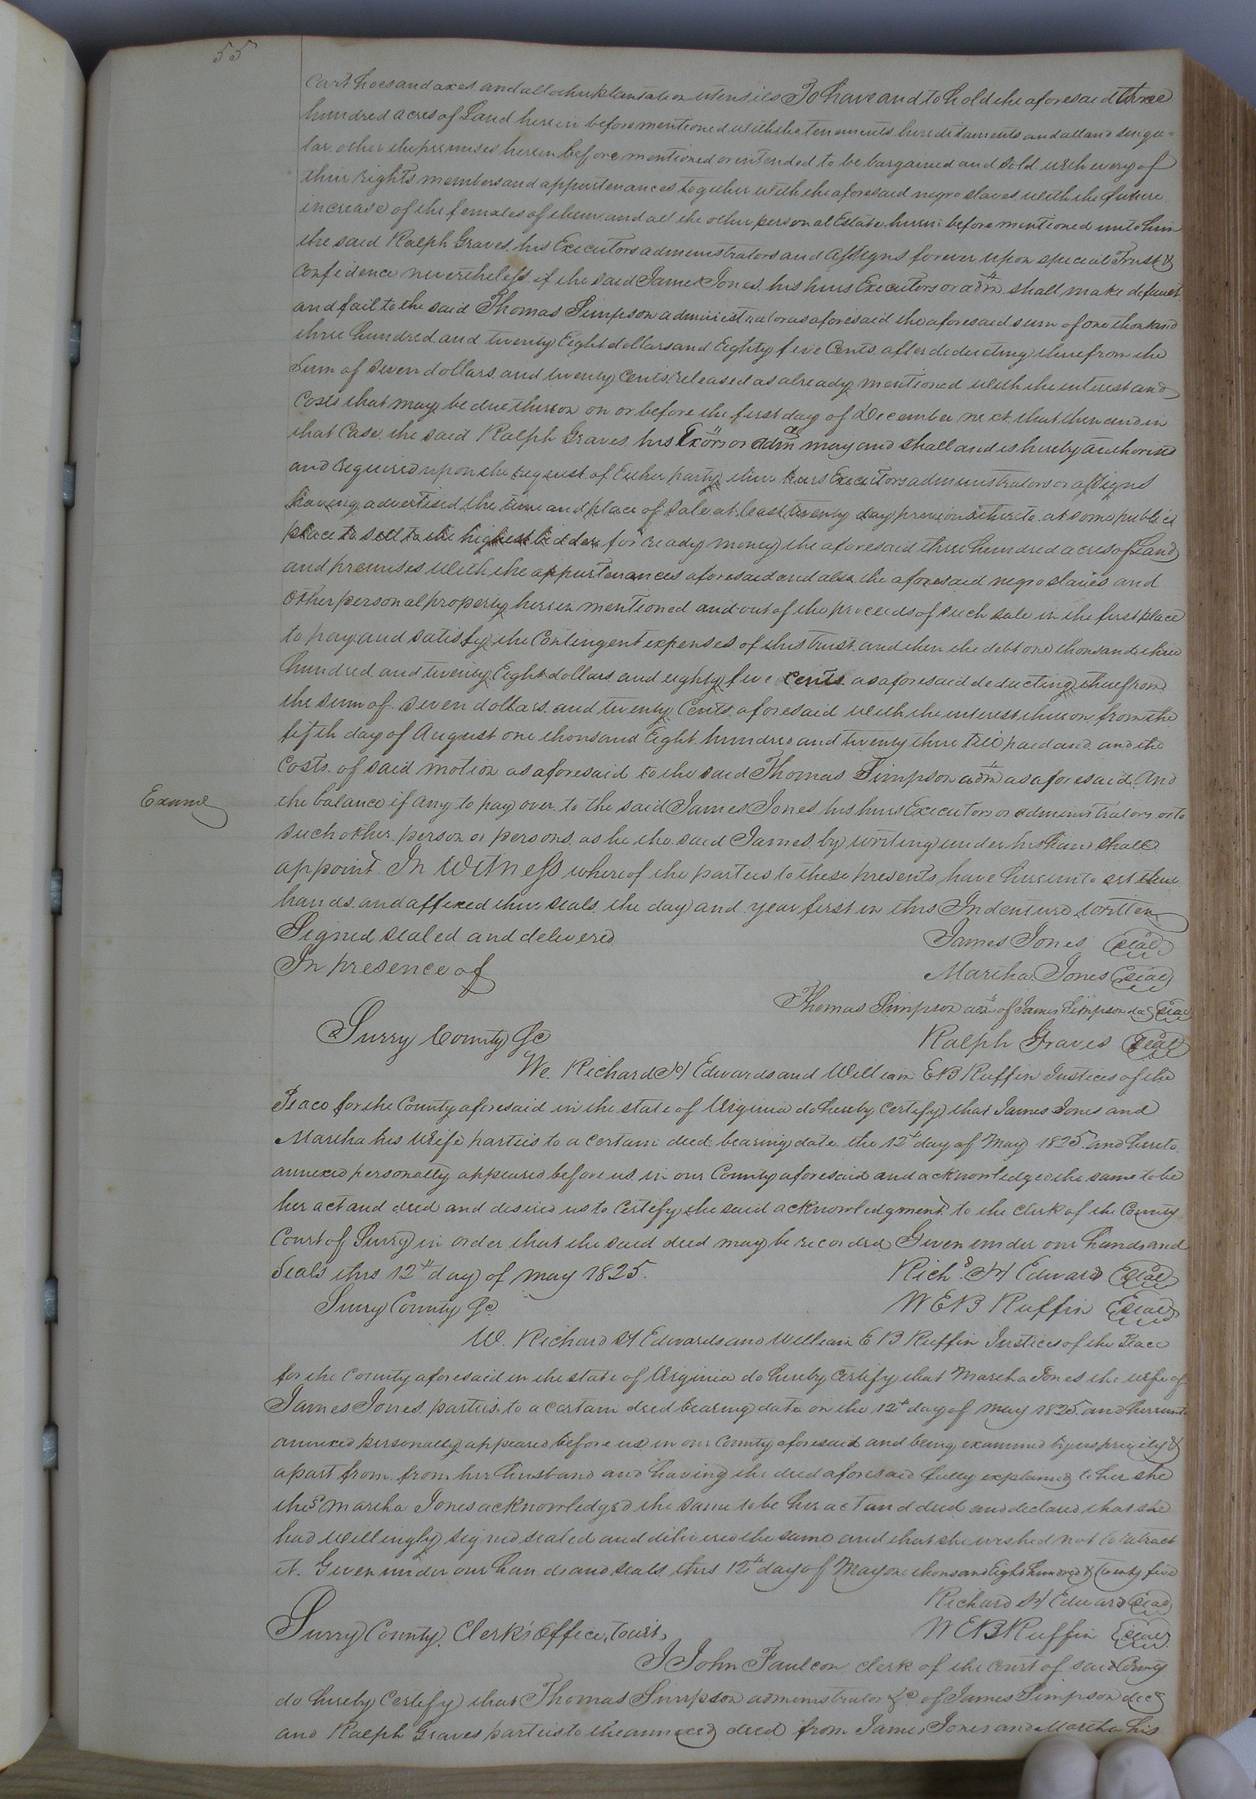 55
Cart hoes and axes and all other plantation utensils To have and to hold the aforesaid three
hundred acres of Land herein before mentioned with the tenements hereditaments and all and singu-
lar other the premises herein before mentioned or intended to be bargained and sold with every of
their rights members and appurtenances together with the aforesaid negro slaves with the future
increase of the females of them and all the other personal Estate herein before mentioned unto him
the said Ralph Graves his Executors administrators and Assigns forever upon special Trust &
Confidence nevertheless if the said James Jones his heirs Executors or adrs shall make default
and fail to the said Thomas Simpson administrator as aforesaid the aforesaid sum of one thousand
three hundred and twenty Eight dollars and Eighty five Cents after deducting therefrom the
Sum of Seven dollars and twenty Cents released as already mentioned with the interest and
Costs that may be due thereon on or before the first day of December next that then and in
that Case the said Ralph Graves his Exors or adms may and shall and is hereby authorised
and required upon the request of Either party their heirs Executors administrators or assigns
having advertised the time and place of sale at least twenty day previous thereto at some public
place to sell to the highest bidder for ready money the aforesaid three hundred acres of Land
and premises with the appurtenances aforesaid and also the aforesaid negro slaves and
other personal property herein mentioned and out of the proceeds of such sale in the first place
to pay and satisfy the Contingent expenses of this trust and then the debt one thousand three
hundred and twenty Eight dollars and eighty five cents as aforesaid deducting therefrom
the sum of seven dollars and twenty Cents aforesaid with the interest thereon from the
fifth day of August one thousand Eight hundred and twenty three till paid and and the
Costs of said motion as aforesaid to the said Thomas Simpson adr as aforesaid And
Examd
the balance if any to pay over to the said James Jones his heirs Executors or administrators or to
such other person or persons as he the said James by writing under his hand shall
appoint In Witness whereof the parties to these presents have hereunto set their
hands and affixed their seals the day and year first in this Indenture written
Signed sealed and delivered James Jones seal
In presence of Martha Jones seal
Thomas Simpson adr of James Simpson decd seal
Surry County Sc Ralph Graves seal
We Richard H Edwards and William E B Ruffin Justices of the
Peace for the County aforesaid in the state of Virginia do hereby certify that James Jones and
Martha his wife parties to a certain deed bearing date the 12th day of May 1825 and hereto
annexed personally appeared before us in our County aforesaid and acknowledged the same to be
her act and deed and desired us to certify the said acknowledgment to the clerk of the County
Court of Surry in order that the said deed may be recorded Given under our hands and
Seals this 12th day of may 1825. Richd H Edwards seal
Surry County Sc W E B Ruffin seal
W. Richard H Edwards and William E B Ruffin Justices of the Peace
for the County aforesaid in the state of Virginia do hereby certify that Martha Jones the wife of
James Jones parties to a certain deed bearing date on the 12th day of May 1825 and hereunto
annexed personally appeared before us in our County aforesaid and being examined by us privily &
apart from from her husband and having the deed aforesaid fully explained to her she
the sd Martha Jones acknowledged the same to be her act and deed and declared that she
had willingly signed sealed and delivered the same and that she wished not to retract
it. Given under our hands and seals this 12th day of May one thousand Eight hundred & twenty five
Richard H Edwards seal
Surry County Clerk's Office, towit, W E B Ruffin seal
I John Faulcon clerk of the court of said County
do hereby certify that Thomas Simpson administrator &c of James Simpson decd
and Ralph Graves parties to the annexed deed from James Jones and Martha his